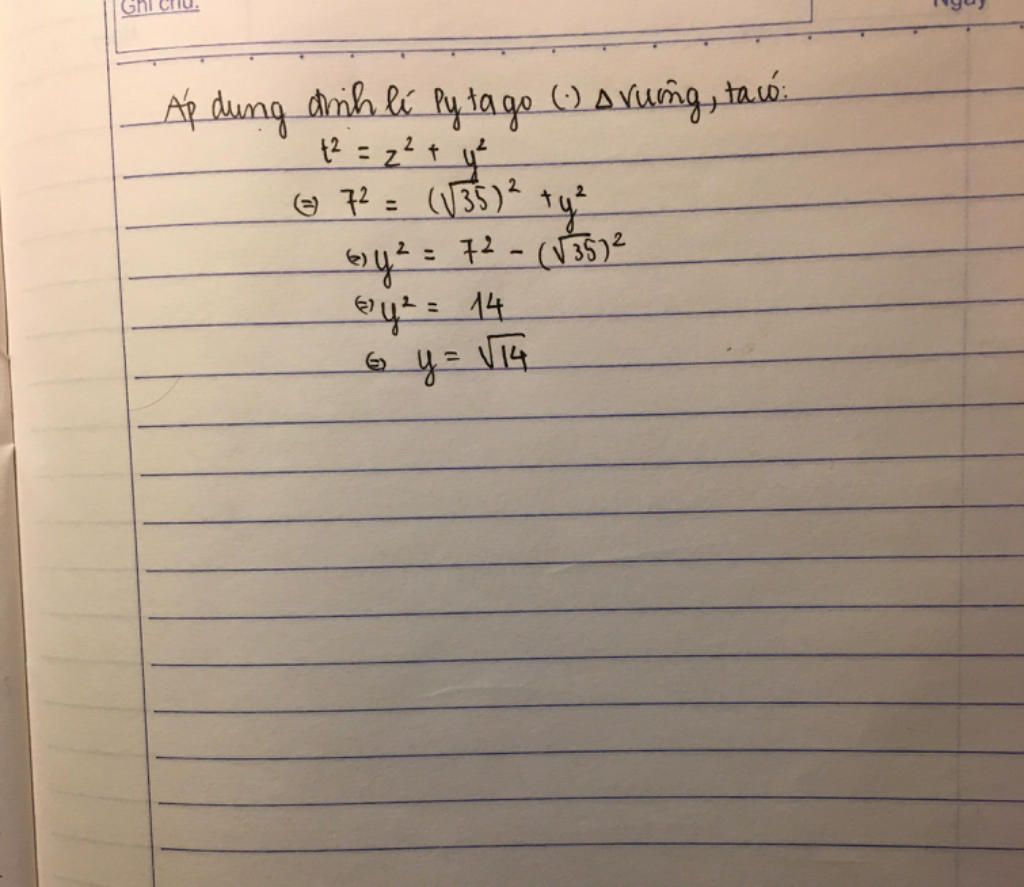 Ghi chú:
Ngày
Áp dụng định lí Pytago (·) Δ vuông, ta có:
t² = z² + y²
(=) 7² = (√35)² + y²
(=) y² = 7² - (√35)²
(=) y² = 14
(=) y = √14